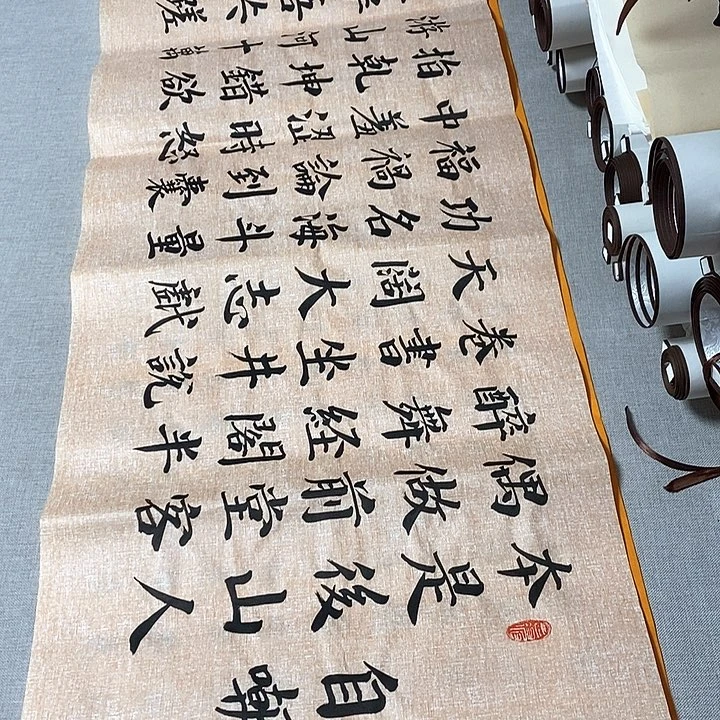 自嘲
本是後山人
偶做前堂客
醉舞経閣半
卷書坐井說
天闊大志戲
功名海斗量
福禍論到囊
中羞澀時怒
指乾坤錯欲
游山河十萬
吾共蹉